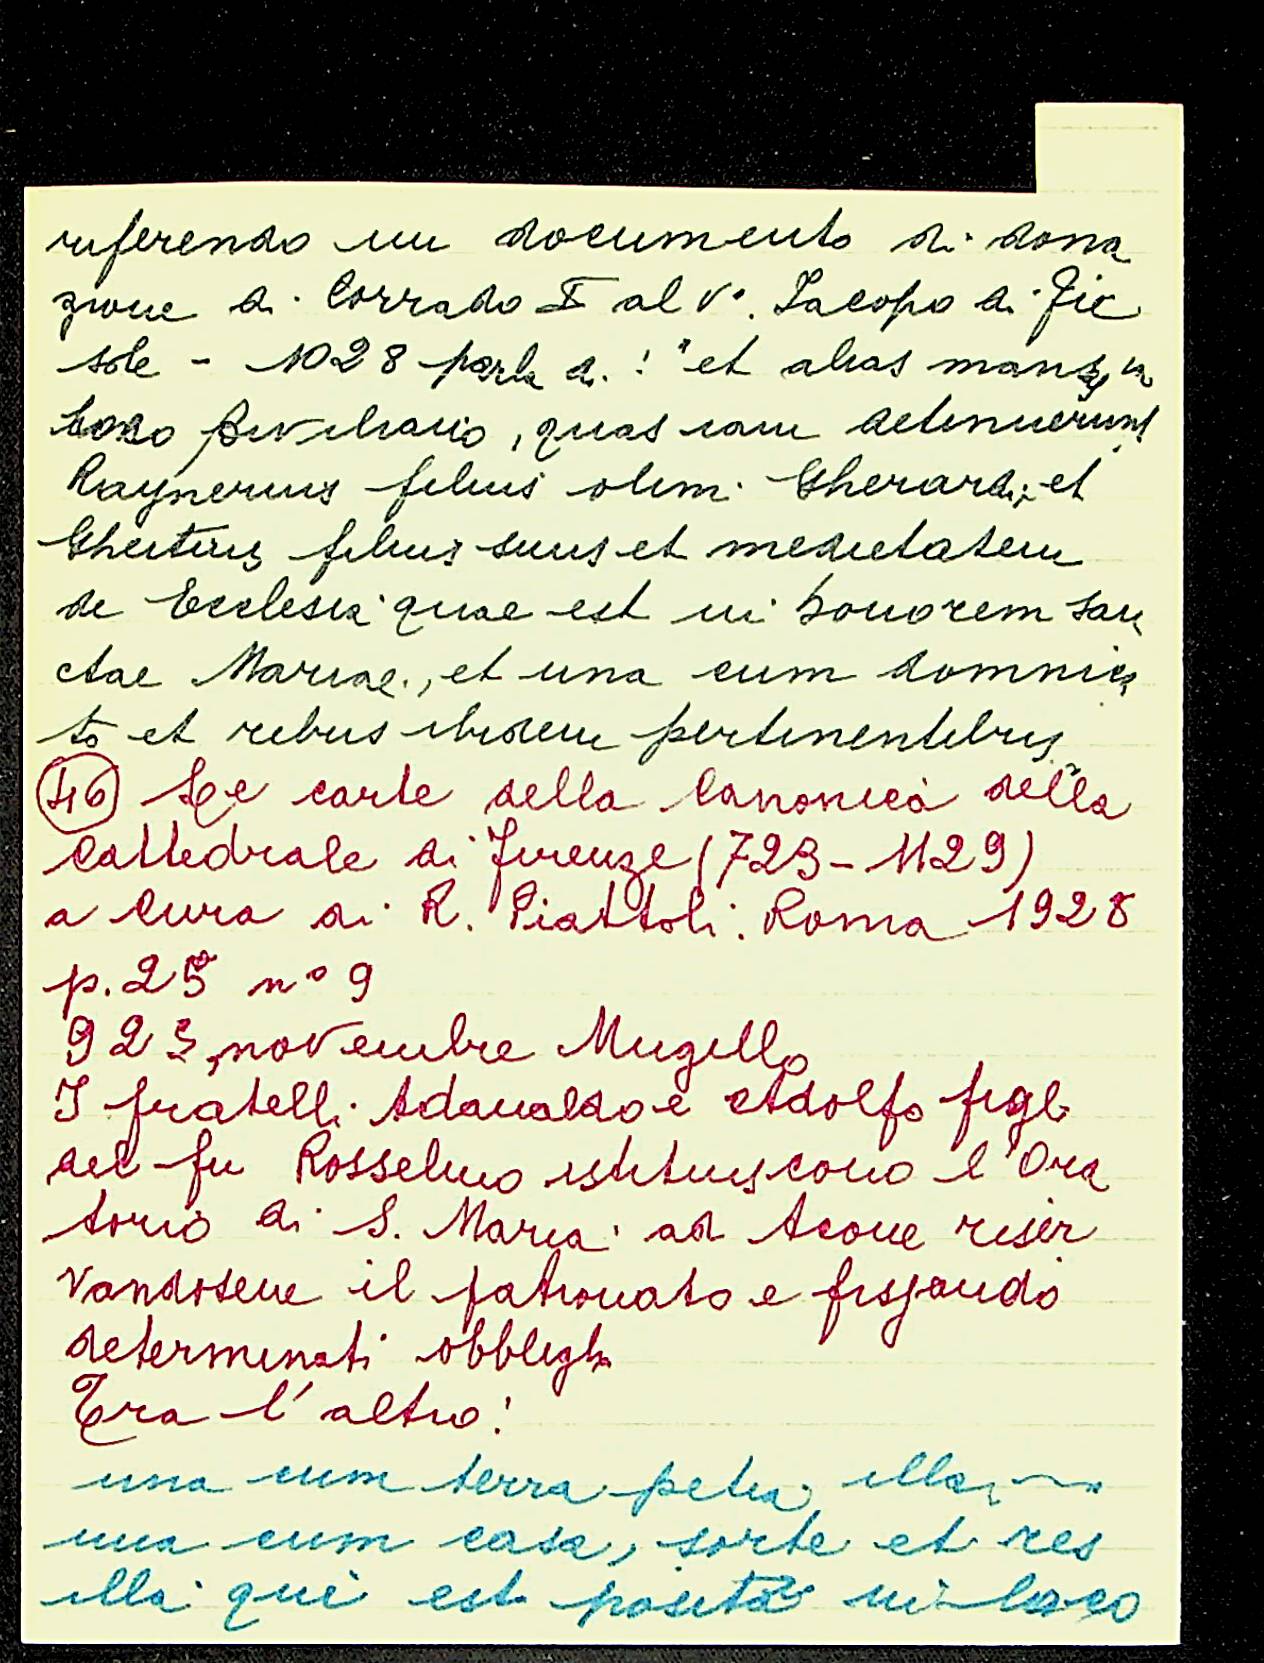 riferendo un documento di dona
zione di Corrado II al Vº. Iacopo di Fie
sole - 1028 parla di: "et alias mansas in
loco, quas iam detinuerunt
Raynerius filius olim Gherardi, et
filius suus et medietatem
de Ecclesia quae est in honorem San
ctae Mariae, et una cum domnica
to et rebus ibidem pertinentibus"
46 Le carte della Canonica della
Cattedrale di Firenze (723-1129)
a cura di R. Piattoli. Roma 1928
p. 25 nº 9
923, novembre Mugello
I fratelli Adaualdo e Adolfo figli
del fu Rosselmo istituiscono l'Ora
torio di S. Maria ad Acone riser
vandosene il patronato e fissando
determinati obblighi
Tra l'altro:
una cum terra petia illa,
una cum casa, sorte et res
illa qui est posita in loco